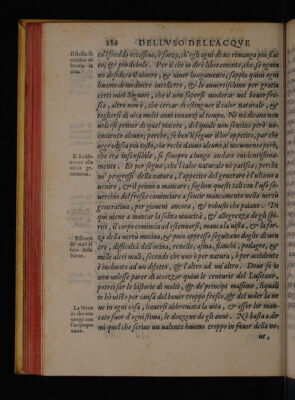 188 DELL'VSO DELL'ACQVE
Il fresco fa
co'l freddo eccessiuo, è forza, ch'egli ogni dì ne rimanga più fiac
co, & più debole. Per il che io dirò liberamente, che se ogniu
no desidera il viuere, & viuer lungamente, sappia quini ogni
huomo di mediocre intelletto, & lo auuertischino per gratia
certi miei Signori, che il non sapersi moderar nel beuer fre-
sco, altro non è, che cercar di estinguer il calor naturale, &
togliersi di vita molti anni innanzi al tempo. Nè mi dicano non
volersi priuar di quel piacere, del quale non sentino però no-
cimento alcuno; perche, se ben il seguir il lor appetito, par che
aggradisca più tosto, che rechi danno alcuno; il nocumento però,
che era insensibile, si scuopre a lungo andare violentissima-
mente. Et per segno, che'l calor naturale nè patisca; perche
ne' progressi della natura, l'appetito del generare è l'ultimo a
uenire, & il primo a mancare; sogliono questi tali con l'uso so-
uerchio del fresco cominciare a sentir mancamento nella uertù
generatiua, per giouani ancora, & robusti che paiano. Di
qui viene a mancar la solita viuacità, & allegrezza de gli spi-
riti, il corpo comincia ad isfermarsi, manca la vista, & la for-
za della uertù motiua, & poco appresso seguitano doglie di uen-
tre, difficoltà dell'orina, renelle, asma, fianchi, podagre, &
mille altri mali; secondo che uno è per natura, ò per accidente
è inclinato ad un difetto, & l'altro ad un'altro. Doue se io
non uolessi parer di attezzar quiui le centurie del Lusitano,
potrei far le historie di molti, & de' principi massime, liquali
ho visto per causa del beuer troppo fresco, & del uoler la ne
ue in ogni cosa, hauersi abbreuiata la vita, & esser lor man-
cato fuor d'ogni stima, le dozzene de gli anni. Nè basta a dir
mi quel che scriue un valente huomo troppo in fauor della ne,
ue,
Il freddo
nuoce alla
uirtù ge-
neratiua.
Discorso
de' mali ef
fetti della
Neue.
La Neue
in che con
uenga con
l'apropin-